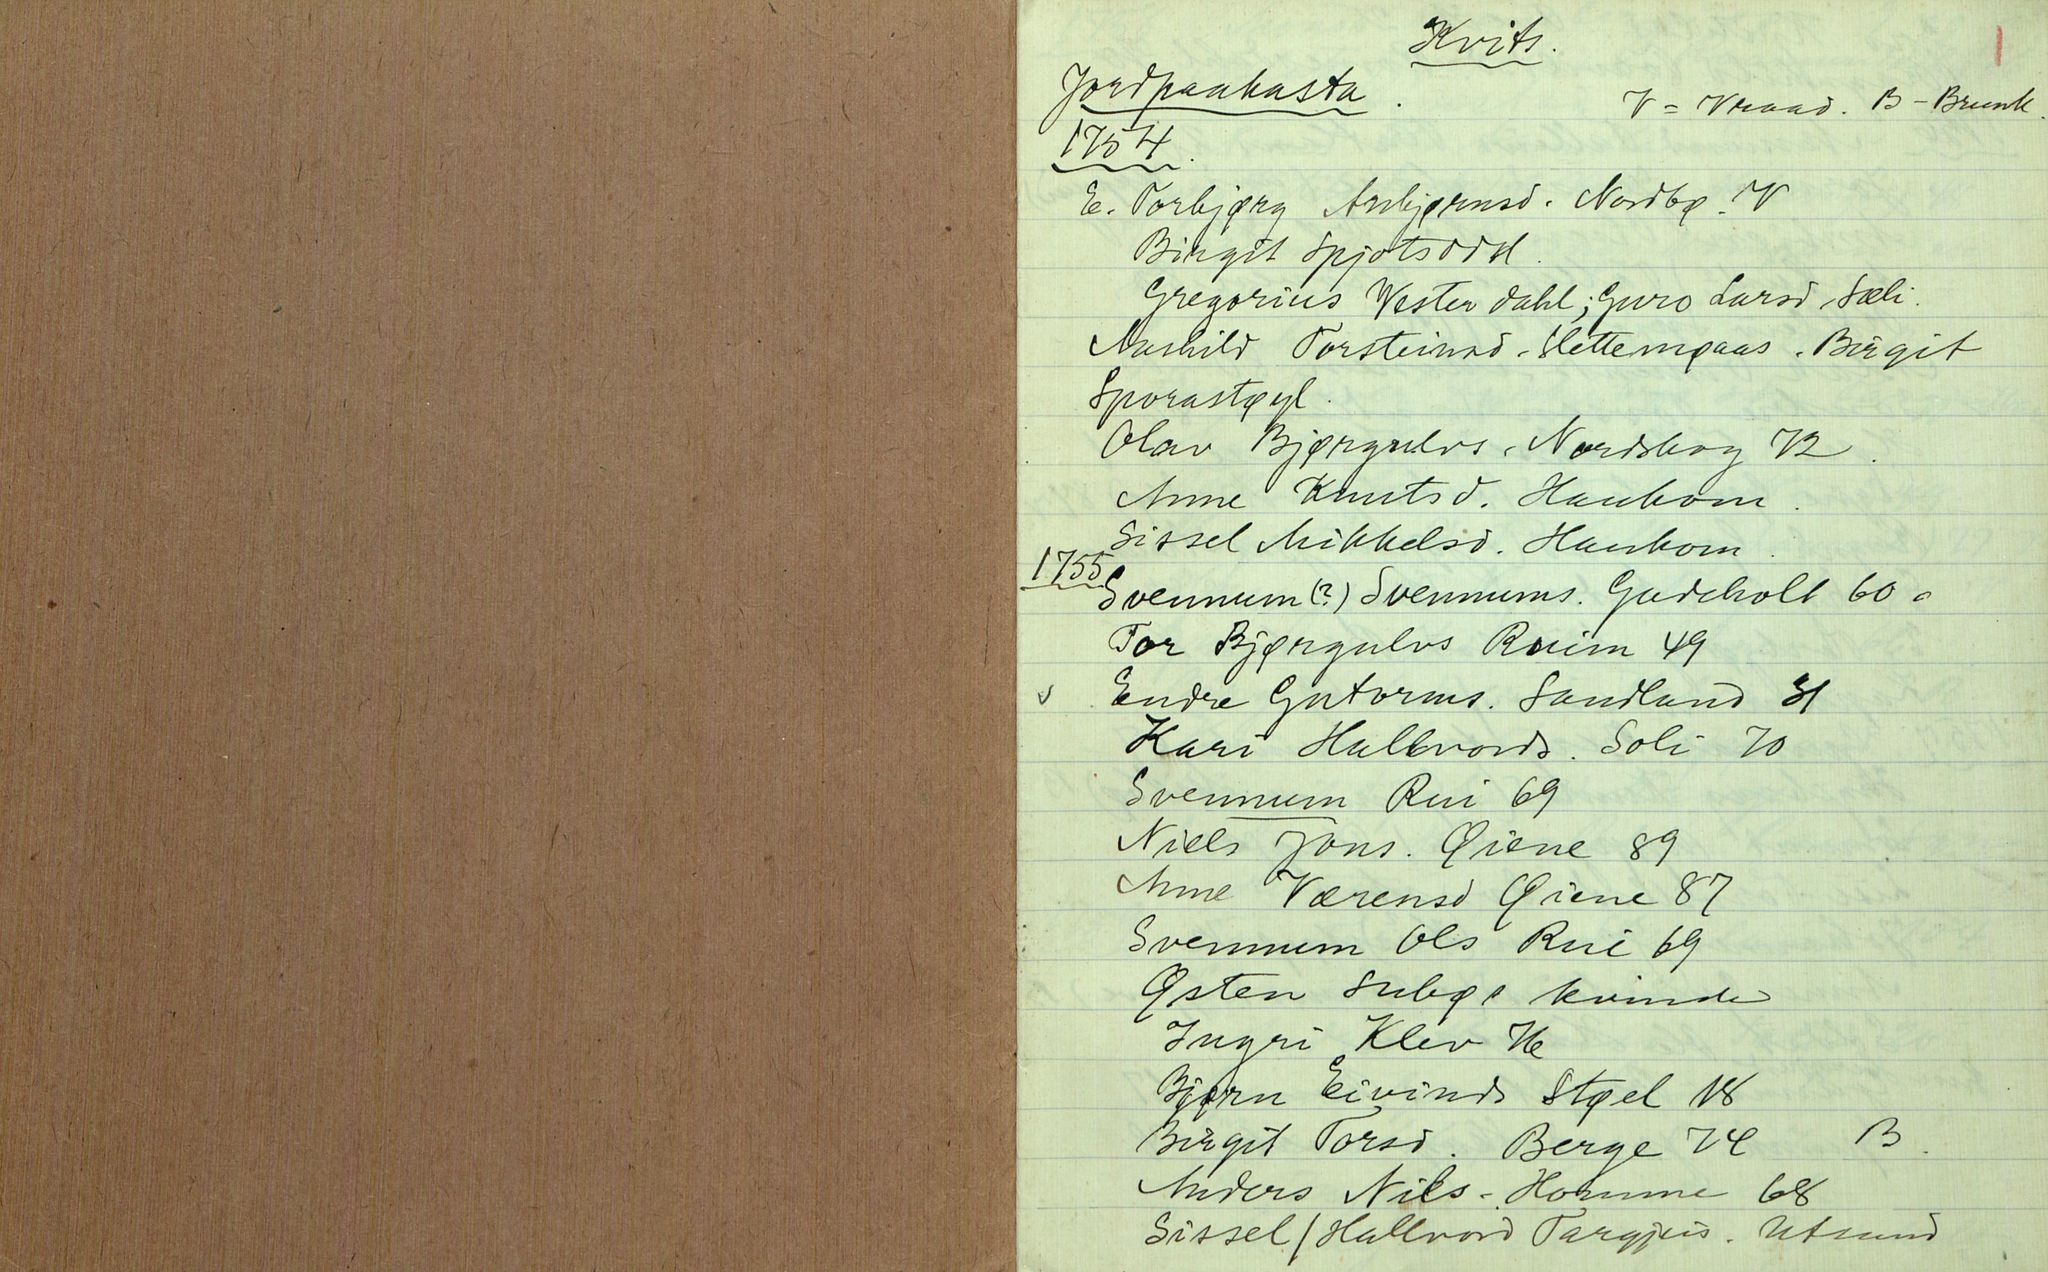 Kvits.
1
Jordpaakasta.
V = Vraad. B - Brunk.
1754.
E. Torbjørg Anbjørnsd. Nordbø. V
Birgit Spjotsodd.
Gregorius Vesterdahl; Guro Larsd Sæli.
Aashild Torsteinsd. Slettemøaas. Birgit
Sporastøyl.
Olav Bjørgulvs. Nordskog 72.
Anne Knutsd. Haukom.
Sissel Mikkelsd. Haukom.
1755
Svennum (?) Svennums. Gudeholt 60
Tor Bjørgulvs Ruim 49
v Endre Gutorms. Sundland 31
Kari Hallvords. Soli 70
Svennum Rui 69
Niels Jons. Øiene 89
Anne Værensd Øiene 87
Svennum Ols Rui 69
Østen Subø kvinde
Ingri Klev 76
Bjørn Eivinds Støel 18
Birgit Torsd. Berge 74 B.
Anders Nils. Homme 68
Sissel / Hallvord Targjeis. Utsund